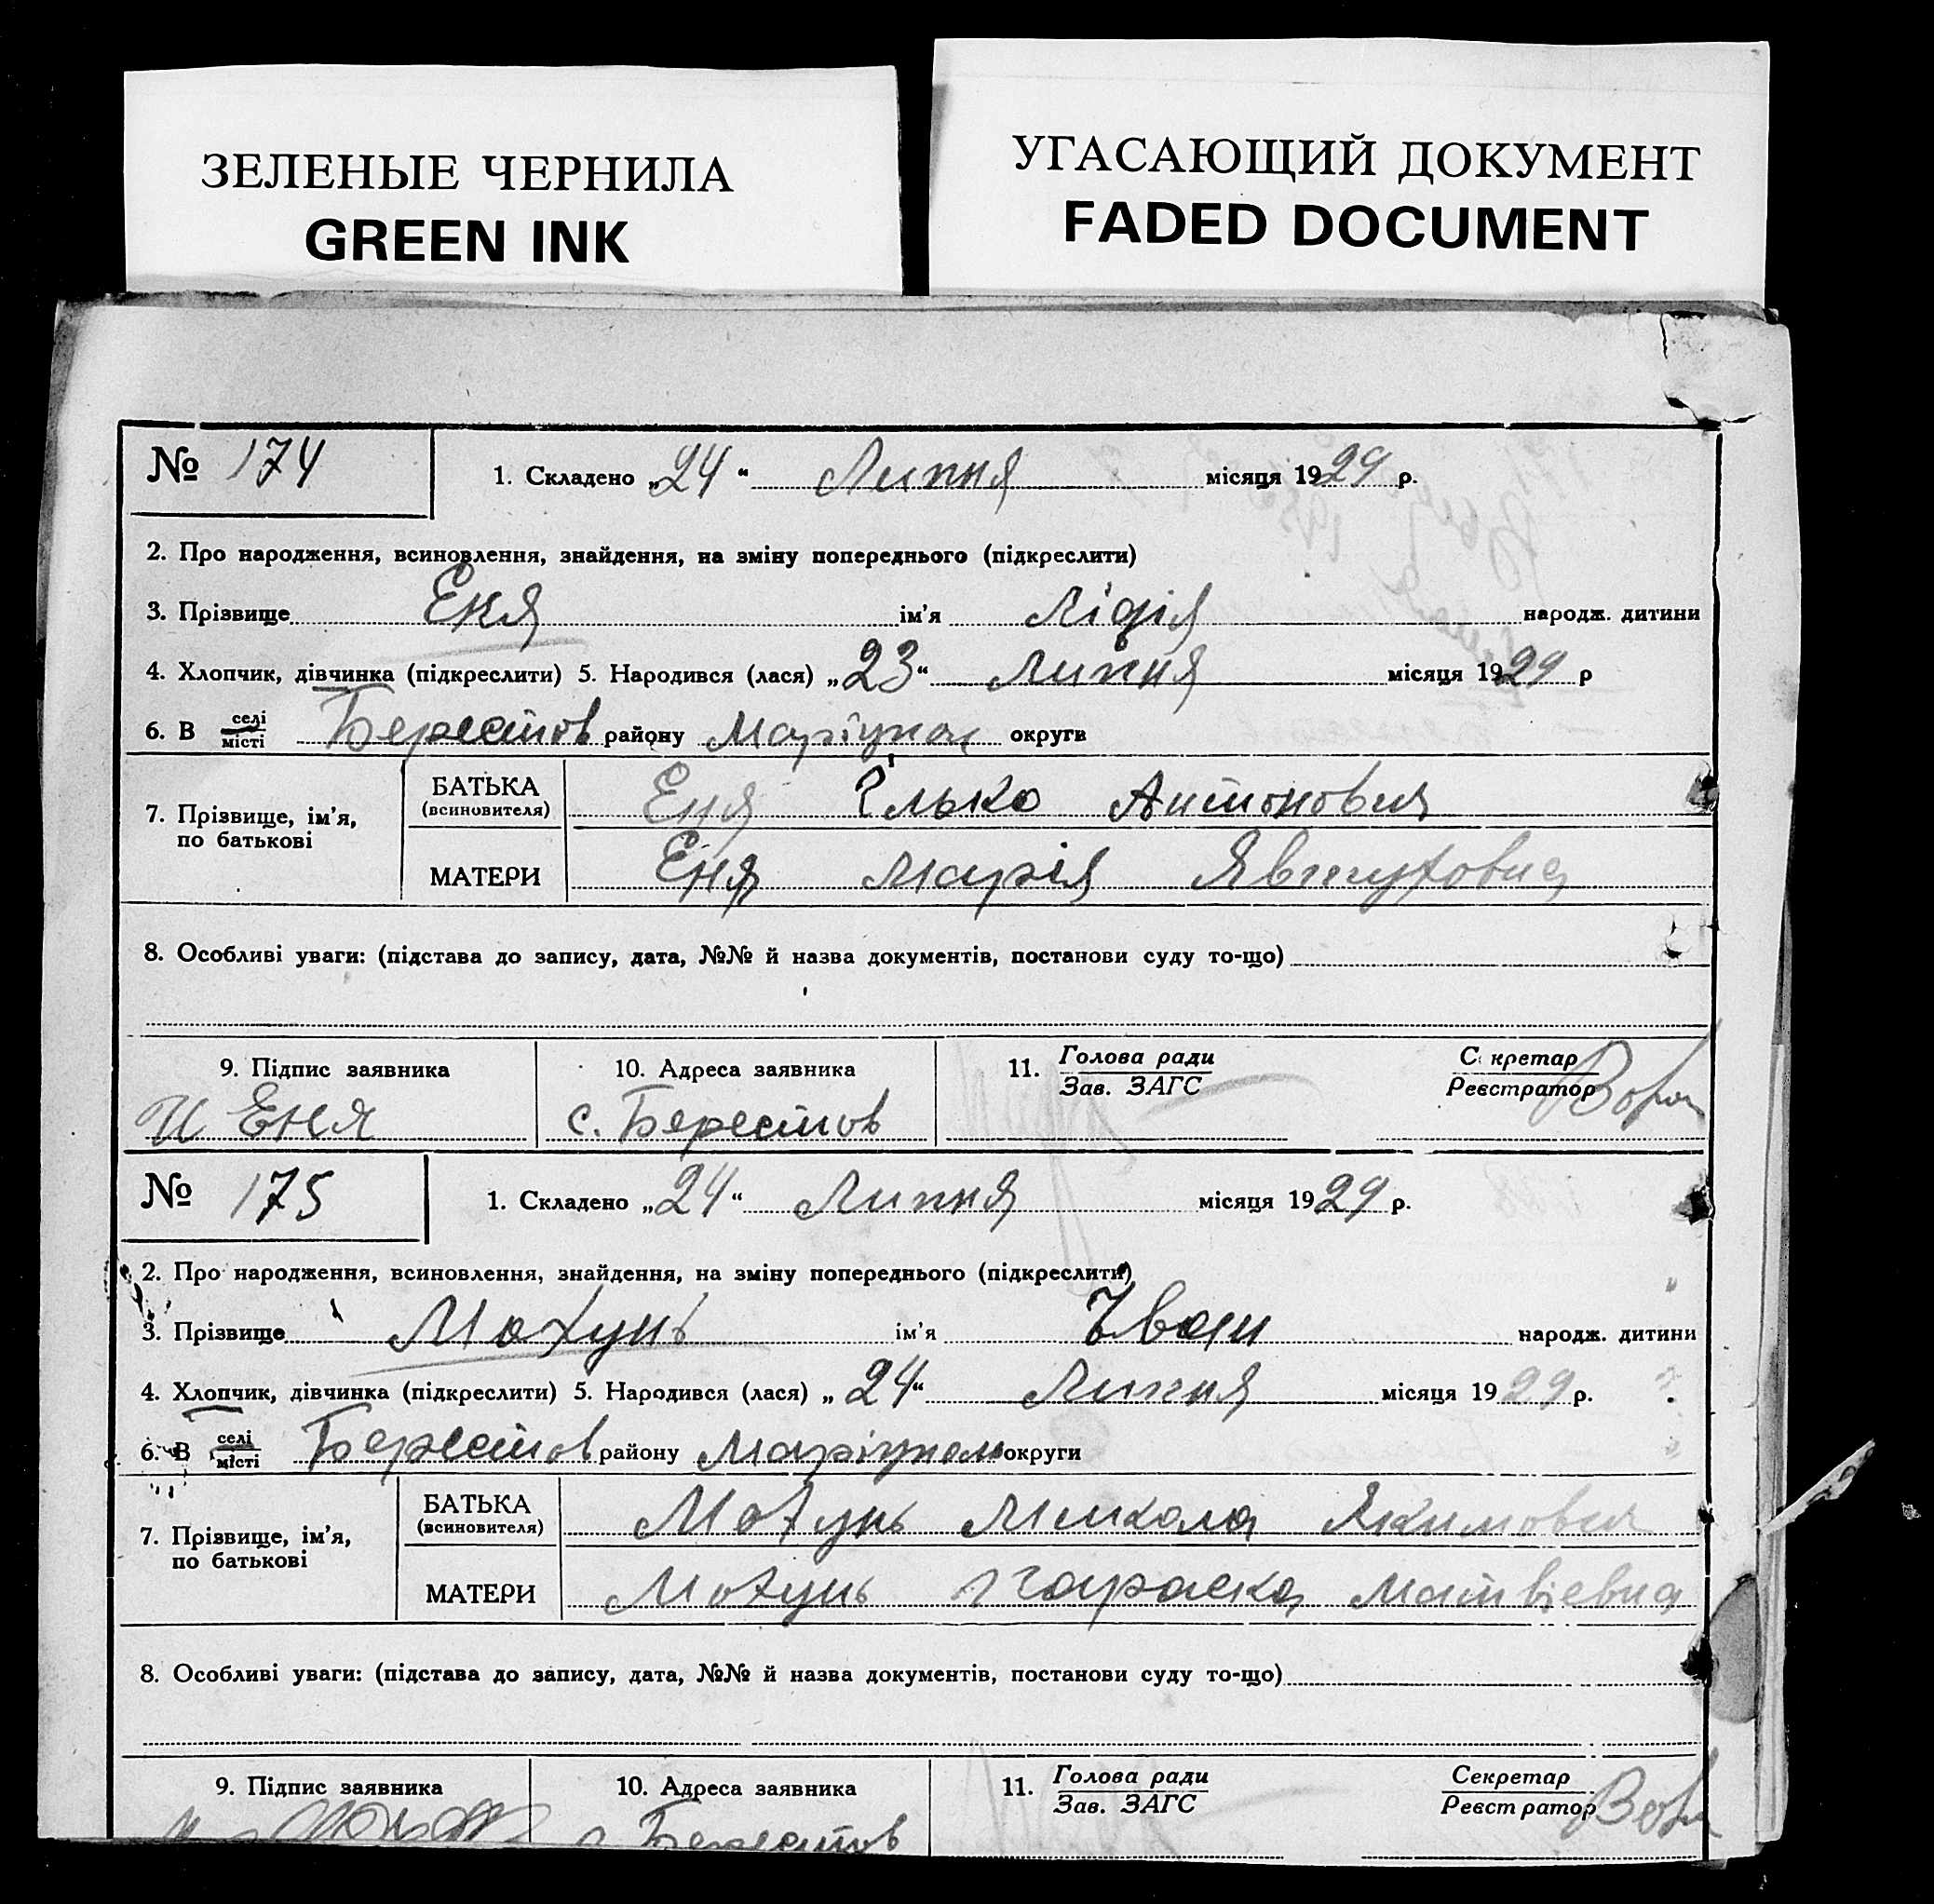 ЗЕЛЕНЫЕ ЧЕРНИЛА
GREEN INK
УГАСАЮЩИЙ ДОКУМЕНТ
FADED DOCUMENT
№ 174 1. Складено „24“ Липня місяця 1929 р.
2. Про народження, всиновлення, знайдення, на зміну попереднього (підкреслити)
3. Прізвище Еня ім'я Лідія народж. дитини
4. Хлопчик, дівчинка (підкреслити) 5. Народився (лася) „23“ Липня місяця 1929 р
6. В селі місті Берестов району Маріупол округи
7. Прізвище, ім'я, по батькові БАТЬКА (всиновителя) Еня Ілько Антонович
МАТЕРИ Еня Марія
8. Особливі уваги: (підстава до запису, дата, №№ й назва документів, постанови суду то-що)
9. Підпис заявника 10. Адреса заявника 11. Голова ради Зав. ЗАГС С кретар Реєстратор
И Еня с. Берестов
№ 175 1. Складено „24“ Липня місяця 1929 р.
2. Про народження, всиновлення, знайдення, на зміну попереднього (підкреслити)
3. Прізвище Мохунь ім'я Іван народж. дитини
4. Хлопчик, дівчинка (підкреслити) 5. Народився (лася) „24“ Липня місяця 1929 р.
6. В селі місті Берестов району Маріупол округи
7. Прізвище, ім'я, по батькові БАТЬКА (всиновителя) Мохунь Микола Якимович
МАТЕРИ Мохунь Параска Матвієвна
8. Особливі уваги: (підстава до запису, дата, №№ й назва документів, постанови суду то-що)
9. Підпис заявника 10. Адреса заявника 11. Голова ради Зав. ЗАГС Секретар Реєстратор
с. Берестов